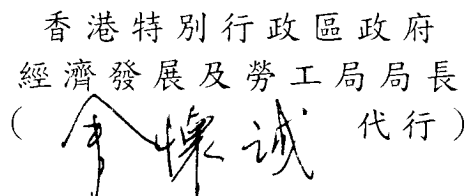 香港特別行政區政府
經濟發展及勞工局局長
( 誠 代行 )